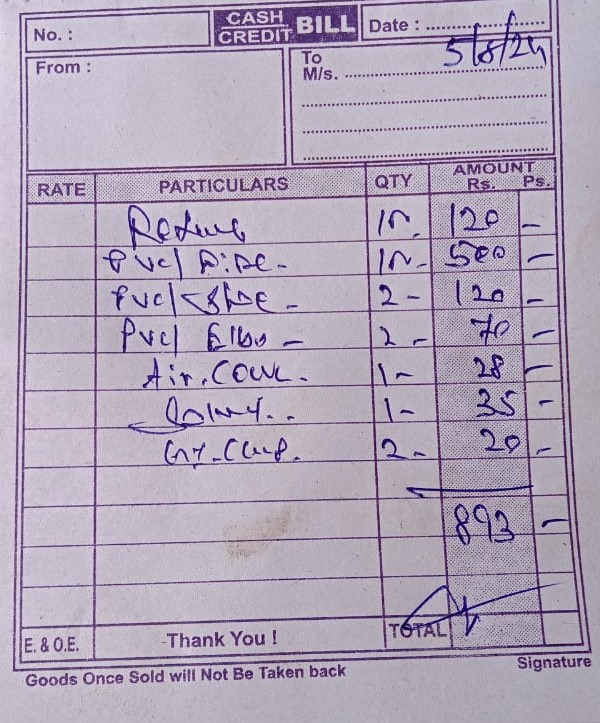 No. :
CASH CREDIT BILL
Date : 5/8/24
From :
To
M/s.
RATE PARTICULARS QTY AMOUNT Rs. Ps.
1 120 -
Pvc/ Pipe - 1 - 500 -
Pvc/ 2 - 120 -
Pvc/ Elbo - 2 - 70 -
Air. 1 - 28 -
1 - 35 -
2 - 20 -
893 -
E. & O.E. Thank You ! TOTAL
Goods Once Sold will Not Be Taken back Signature